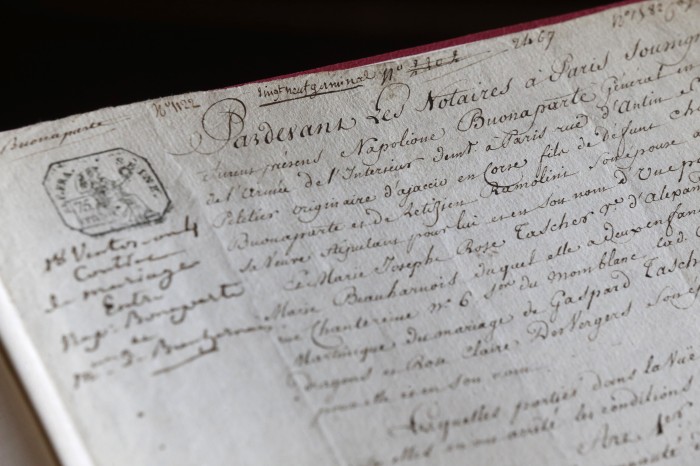 2467
N° 1122
vingt neuf germinal N° 1101
Buonaparte
Pardevant Les Notaires à Paris soussign
furent présens Napolione Buonaparte Général en
de l'Armée de l'Interieur demt à Paris rue d'Antin
originaire d'ajaccio en Corse fils de défunt Ch
Buonaparte et de Ramolini son épouse
Veuve Stipulant pour lui et en son nom D'une p
Et Marie Joseph Rose Tascher Ve d'Alexa
Marie Beauharnois duquel elle a deux enfan
rue Chantereine n° 6 son du Montblanc lad. C
Martinique du mariage de Gaspard Tasch
Rose Claire Des Vergers son
et en son nom
Lesquelles parties dans la Vuë
arrêté les conditions
Art. 1er
18 Ventose an 4
Contrat
de mariage
Entre
Nap. Bonaparte
et